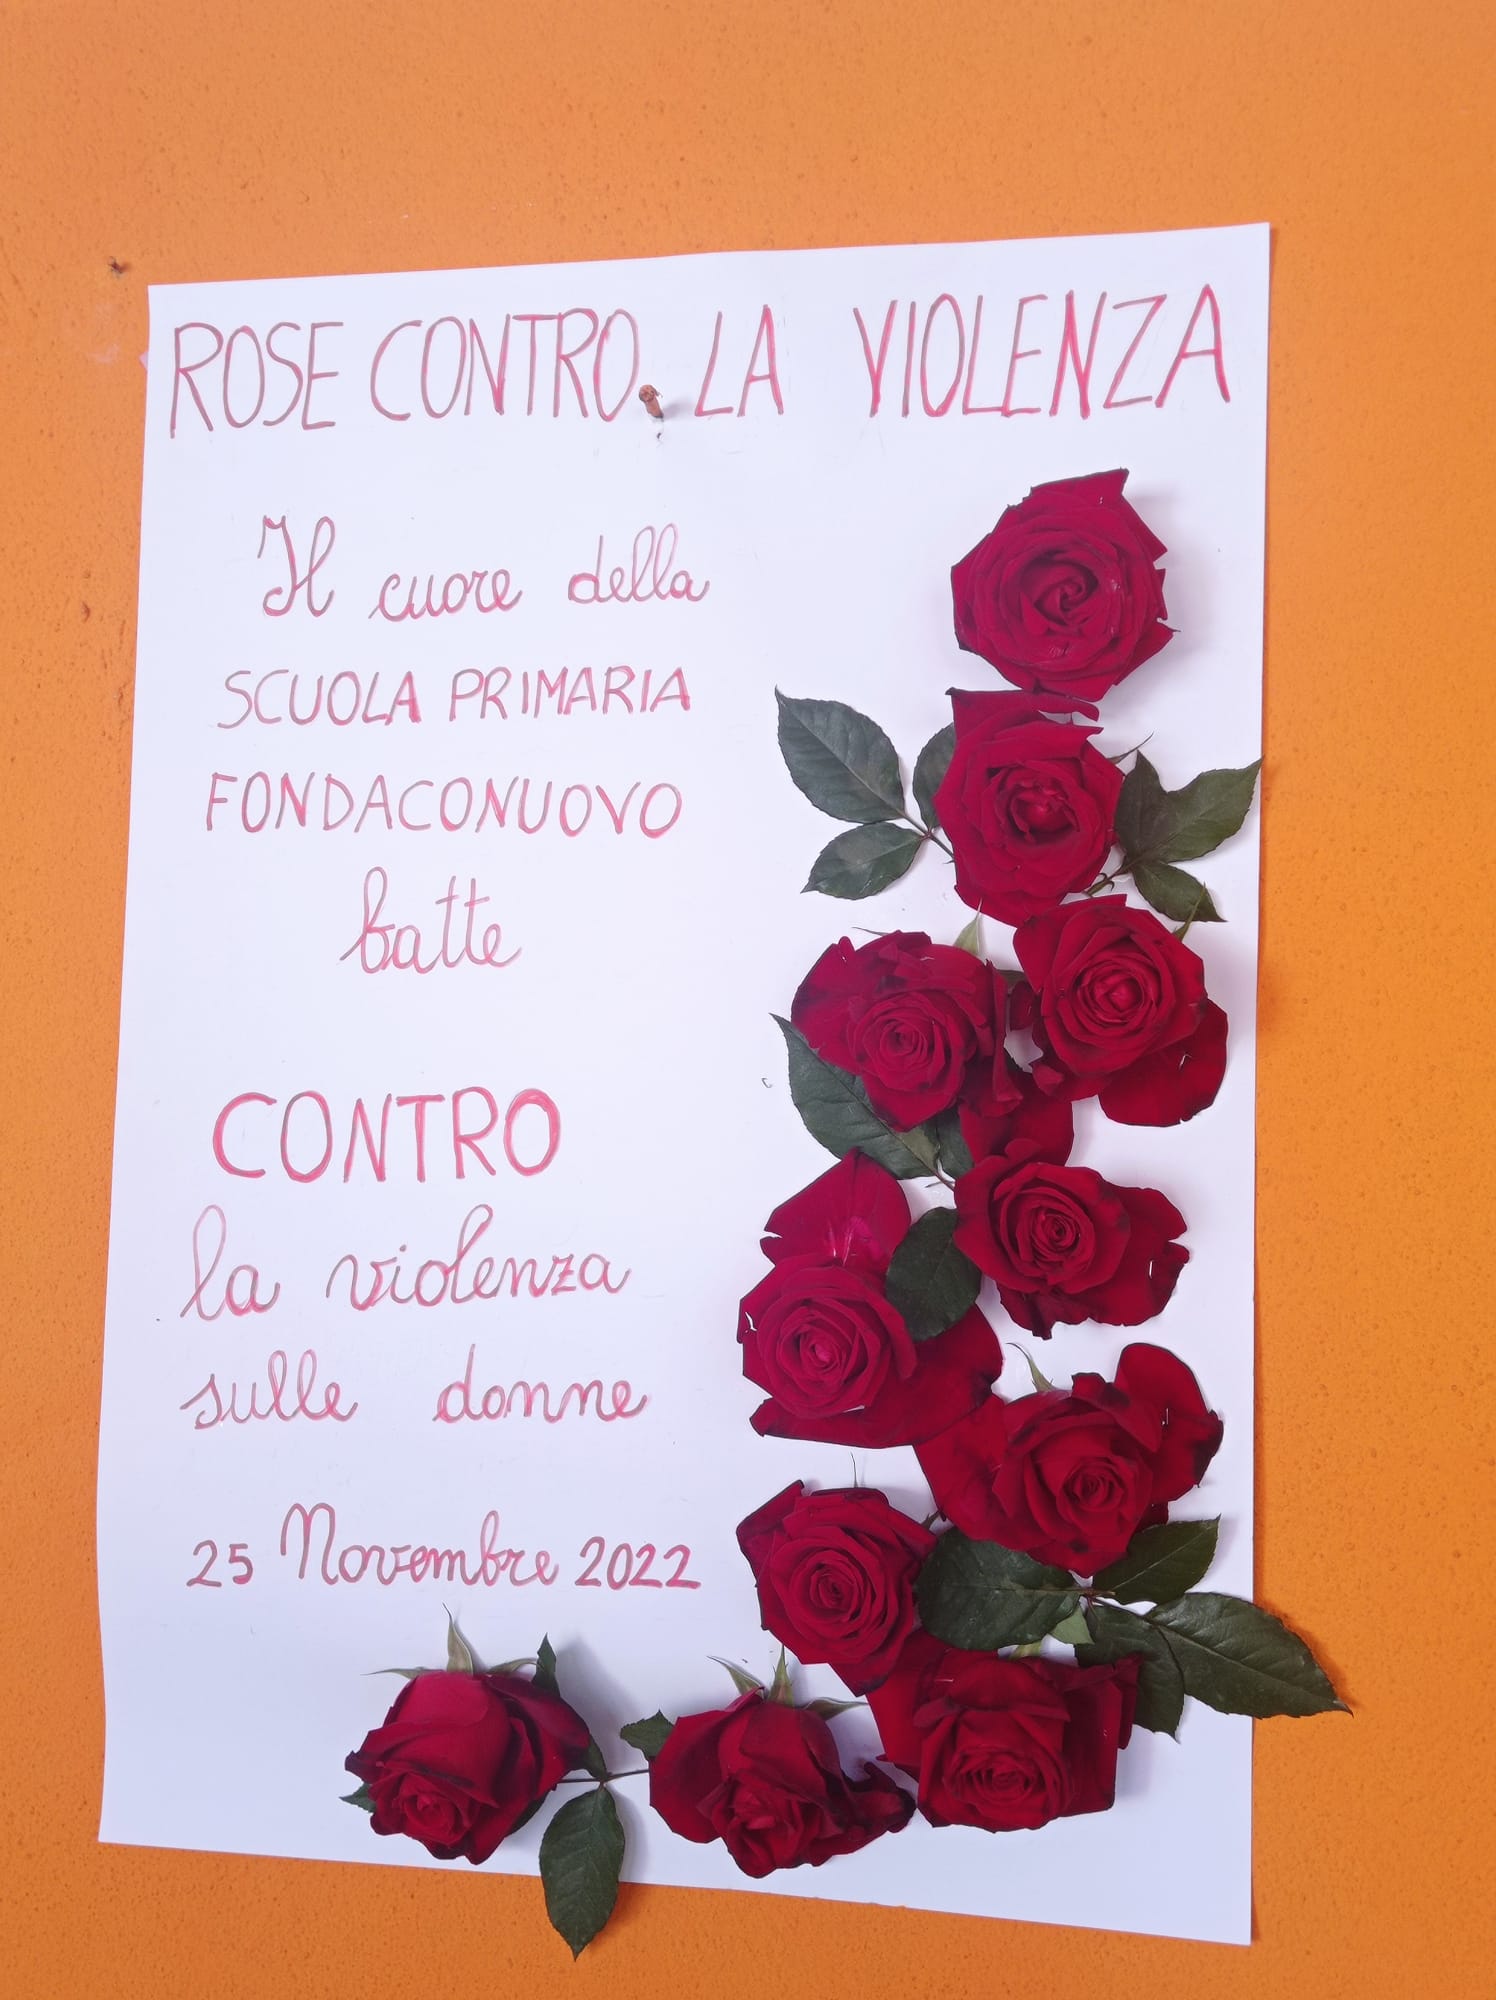 ROSE CONTRO LA VIOLENZA
Il cuore della
SCUOLA PRIMARIA
FONDACONUOVO
batte
CONTRO
la violenza
sulle donne
25 Novembre 2022